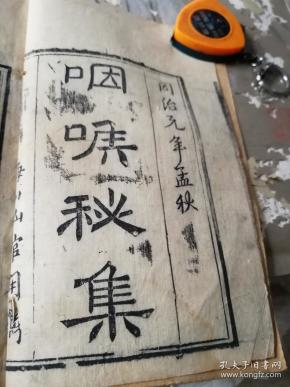 同治元年孟秋
咽喉秘集
山館用雋
孔夫子旧书网
kongfz.com